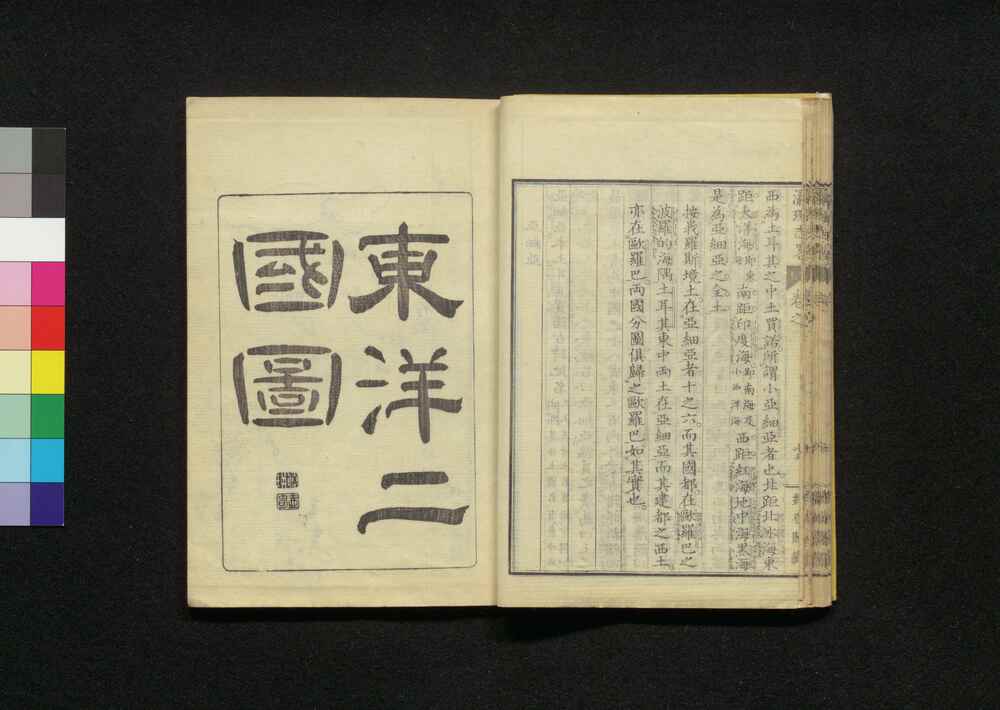 西為土耳其之中土買諾所謂小亞細亞者也北距北冰海東
距大洋海即東南距印度海即南海及小西洋海西距紅海地中海黑海
是為亞細亞之全土
按峩羅斯境土在亞細亞者十之六而其國都在歐羅巴之
波羅的海隅土耳其東中兩土在亞細亞而其建都之西土
亦在歐羅巴兩國分圖俱歸之歐羅巴如其實也
東洋二
國圖